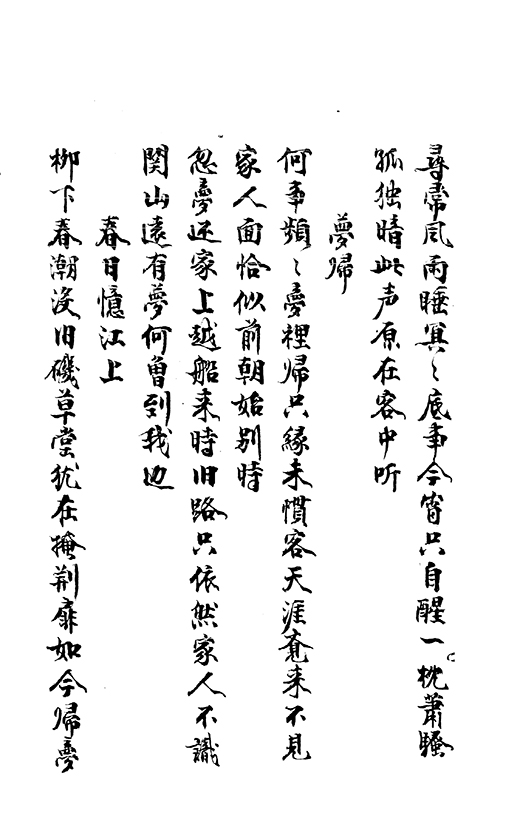 尋常風雨睡冥〻底事今宵只自醒一枕蕭騷
孤独暗此声原在客中听
夢帰
何事頻〻夢裡帰只緣未慣客天涯竟来不見
家人面恰似前朝始別時
忽夢还家上越船来時旧路只依然家人不識
関山遠有夢何曽到我边
春日憶江上
柳下春潮没旧磯草堂犹在掩荆扉如今帰夢